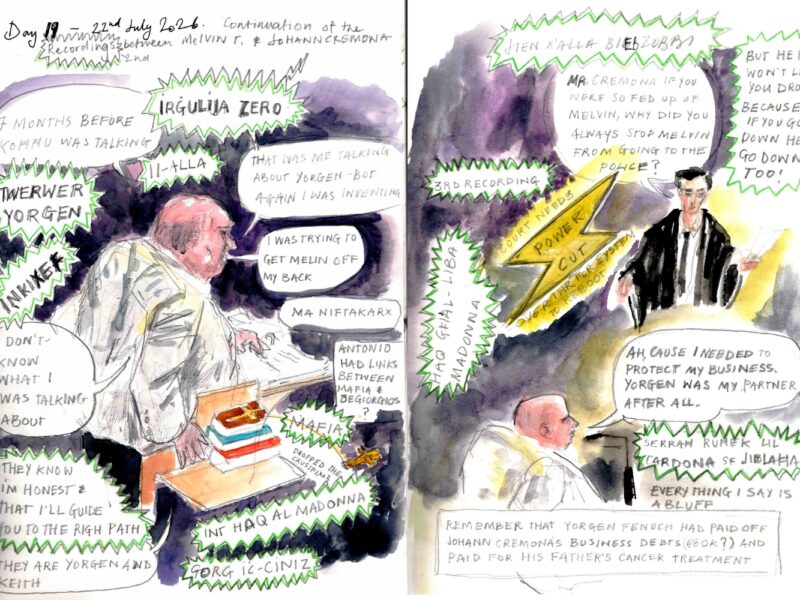 Day 19 - 22nd July 2026. Continuation of the
Recordings between MELVIN T. & JOHANN CREMONA
2nd
7 MONTHS BEFORE
KOHHU WAS TALKING
IRGULIJA ZERO
II-ALLA
TWERWER
YORGEN
INKIXEK
THAT WAS ME TALKING
ABOUT YORGEN - BUT
AGAIN I WAS INVENTING
I WAS TRYING TO
GET MELIN OFF
MY BACK
MA NIFTAKARX
ANTONIO
HAD LINKS
BETWEEN
MAFIA &
DEGIORGIOS
?
I DON'T
KNOW
WHAT I
WAS TALKING
ABOUT
MAFIA
DROPPED THE
THEY KNOW
I'M HONEST &
THAT I'LL GUIDE
YOU TO THE RIGH PATH
INT HAQ AL MADONNA
THEY ARE YORGEN AND
KEITH
GORG IĊ-CINIZ
JIEN X'ALLA
MR. CREMONA IF YOU
WERE SO FED UP OF
MELVIN, WHY DID YOU
ALWAYS STOP MELVIN
FROM GOING TO THE
POLICE?
BUT HE
WON'T
YOU
BECAUSE
IF YOU GO
DOWN HE
GO DOWN
TOO!
3RD RECORDING
COURT NEEDS
POWER
CUT
OVER FOR SYSTEM
TO REBOOT
HAQ GĦAL-LIBA
MADONNA
AH, CAUSE I NEEDED TO
PROTECT MY BUSINESS.
YORGEN WAS MY PARTNER
AFTER ALL.
SERRAH RUĦEK LIL
CARDONA SE JIBLAHA
EVERYTHING I SAY IS
A BLUFF
REMEMBER THAT YORGEN FENECH HAD PAID OFF
JOHANN CREMONA'S BUSINESS DEBTS (€80K?) AND
PAID FOR HIS FATHER'S CANCER TREATMENT